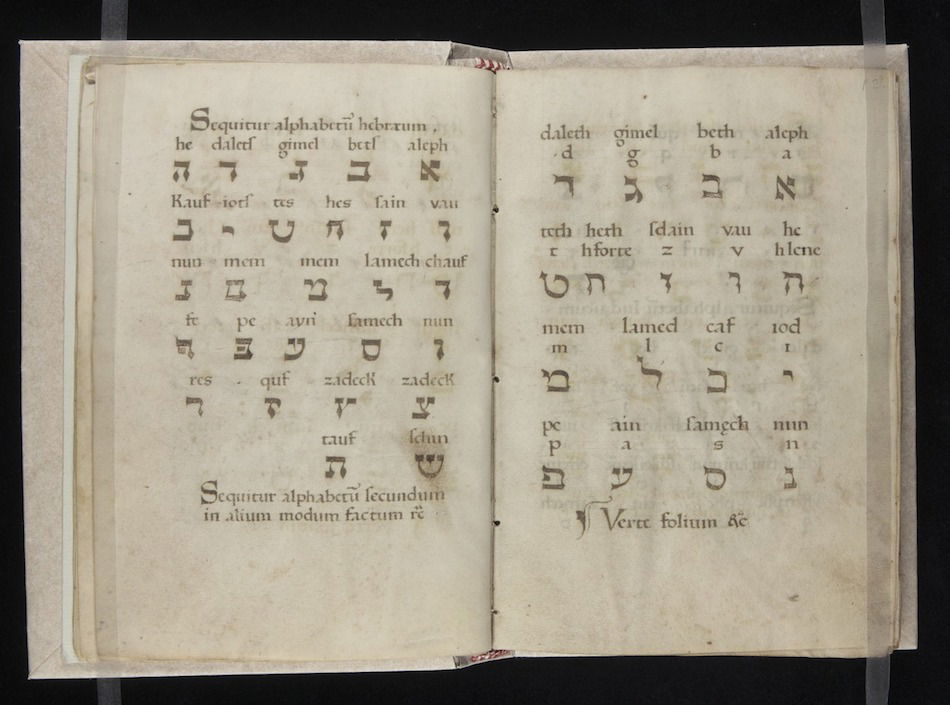 Sequitur alphabetū hebræum .
he daletſ gimel betſ aleph
א ב ג ד ה
Kauf iotſ tes hes ſain vau
ו ז ח ט י כ
nun mem mem lamech chauf
ך ל מ ם נ
fe pe ayn ſamech nun
ן ס ע פ ף
res quf zadeck zadeck
צ ץ ק ר
tauf ſchin
ש ת
Sequitur alphabetū ſecundum
in alium modum factum
daleth gimel beth aleph
d g b a
א ב ג ד
teth heth ſdain vau he
t hforte z v hlene
ה ו ז ח ט
mem lamed caf iod
m l c i
י כ ל מ
pe ain ſamęch nun
p a s n
נ ס ע פ
Verte folium